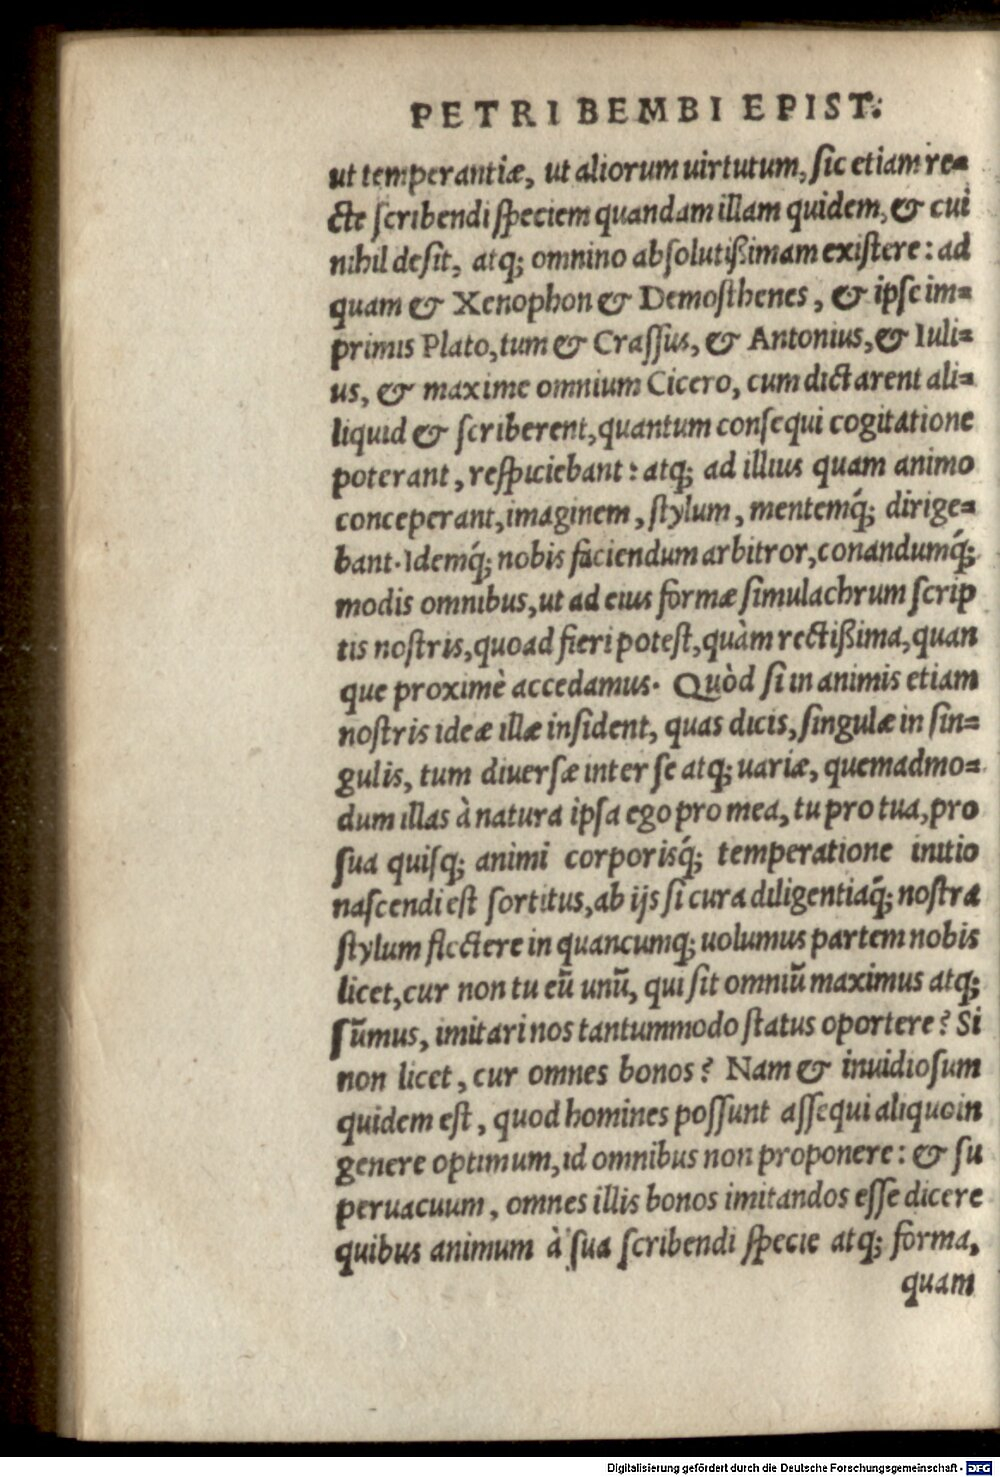 PETRI BEMBI EPIST.
ut temperantiæ, ut aliorum uirtutum, ſic etiam re=
cte ſcribendi ſpeciem quandam illam quidem, & cui
nihil deſit, atq; omnino abſolutißimam exiſtere: ad
quam & Xenophon & Demoſthenes, & ipſe im=
primis Plato, tum & Craſſus, & Antonius, & Iuli=
us, & maxime omnium Cicero, cum dictarent ali=
liquid & ſcriberent, quantum conſequi cogitatione
poterant, reſpiciebant: atq; ad illius quam animo
conceperant, imaginem, ſtylum, mentemq́; dirige=
bant. Idemq́; nobis faciendum arbitror, conandumq́;
modis omnibus, ut ad eius formæ ſimulachrum ſcrip
tis noſtris, quoad fieri poteſt, quàm rectißima, quan
que proximè accedamus. Quòd ſi in animis etiam
noſtris ideæ illæ inſident, quas dicis, ſingulæ in ſin=
gulis, tum diuerſæ inter ſe atq; uariæ, quemadmo=
dum illas à natura ipſa ego pro mea, tu pro tua, pro
ſua quiſq; animi corporisq́; temperatione initio
naſcendi eſt ſortitus, ab ijs ſi cura diligentiaq́; noſtra
ſtylum flectere in quancumq; uolumus partem nobis
licet, cur non tu eũ unũ, qui ſit omniũ maximus atq;
ſũmus, imitari nos tantummodo ſtatus oportere? Si
non licet, cur omnes bonos? Nam & inuidioſum
quidem eſt, quod homines poſſunt aſſequi aliquo in
genere optimum, id omnibus non proponere: & ſu
peruacuum, omnes illis bonos imitandos eſſe dicere
quibus animum à ſua ſcribendi ſpecie atq; forma,
quam
Digitalisierung gefördert durch die Deutsche Forschungsgemeinschaft - DFG